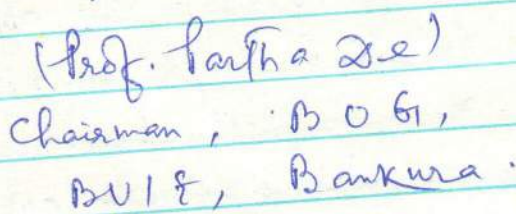 (Prof. Partha De)
Chairman, BOG,
BUIE, Bankura.